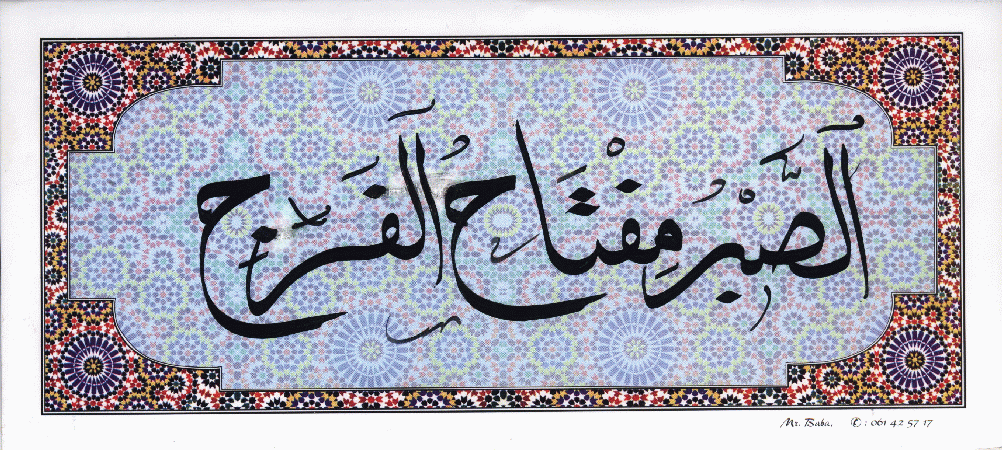 الصَّبْرُ مِفْتَاحُ الْفَرَجِ
Mr. Baba. ✆ : 061 42 57 17